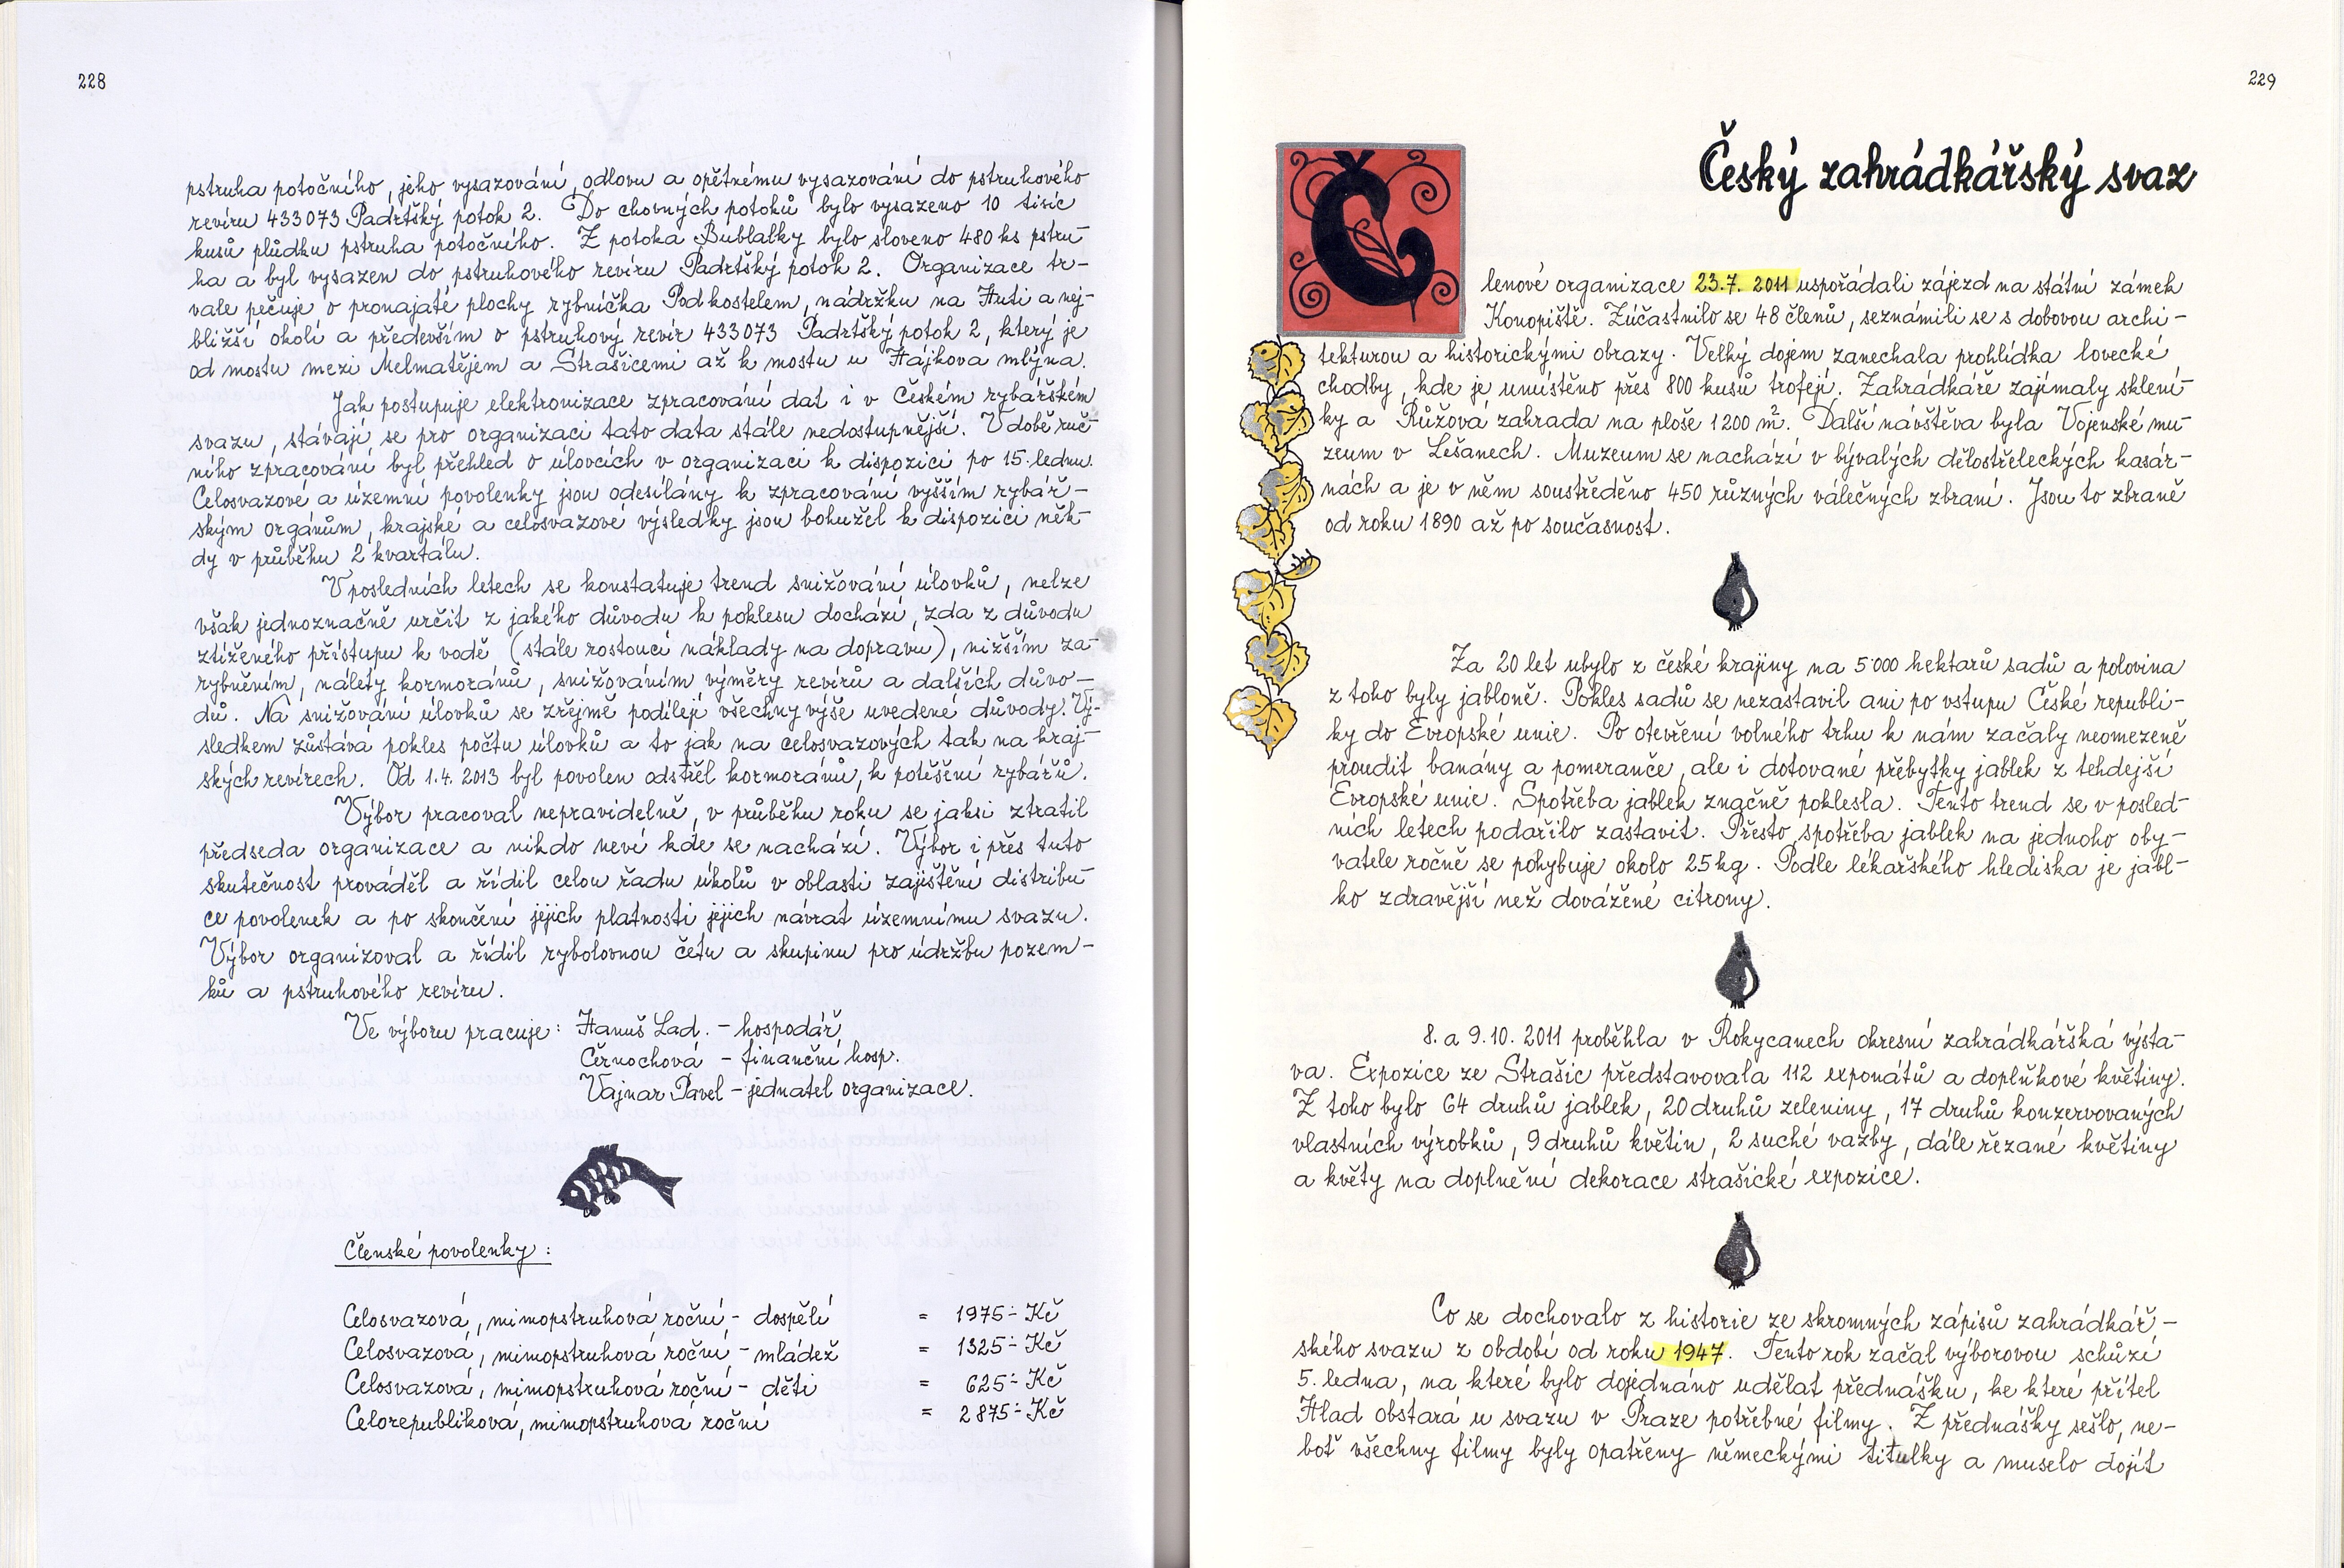 228
pstruha potočního, jeho vysazování, odlovu a opětnému vysazování do pstruhového
revíru 433073 Padrťský potok 2. Do chovných potoků bylo vysazeno 10 tisíc
kusů plůdku pstruha potočního. Z potoka Bublalky bylo sloveno 480 ks pstru-
ha a byl vysazen do pstruhového revíru Padrťský potok 2. Organizace tr-
vale pečuje o pronajaté plochy rybníčka Pod kostelem, nádržku na Huti a nej-
bližší okolí a především o pstruhový revír 433073 Padrťský potok 2, který je
od mostu mezi Melmatějem a Strašicemi až k mostu u Hájkova mlýna.
Jak postupuje elektronizace zpracování dat i v Českém rybářském
svazu, stávají se pro organizaci tato data stále nedostupnější. V době ruč-
ního zpracování byl přehled o úlovcích v organizaci k dispozici po 15. lednu.
Celosvazové a územní povolenky jsou odesílány k zpracování vyšším rybář-
ským orgánům, krajské a celosvazové výsledky jsou bohužel k dispozici něk-
dy v průběhu 2 kvartálu.
V posledních letech se konstatuje trend snižování úlovků, nelze
však jednoznačně určit z jakého důvodu k poklesu dochází, zda z důvodu
ztíženého přístupu k vodě (stále rostoucí náklady na dopravu), nižším za-
rybněním, nálety kormoránů, snižováním výměry revírů a dalších důvo-
dů. Na snižování úlovků se zřejmě podílejí všechny výše uvedené důvody. Vý-
sledkem zůstává pokles počtu úlovků a to jak na celosvazových tak na kraj-
ských revírech. Od 1.4. 2013 byl povolen odstřel kormoránů, k potěšení rybářů.
Výbor pracoval nepravidelně, v průběhu roku se jaksi ztratil
předseda organizace a nikdo neví kde se nachází. Výbor i přes tuto
skutečnost prováděl a řídil celou řadu úkolů v oblasti zajištění distribu-
ce povolenek a po skončení jejich platnosti jejich návrat územnímu svazu.
Výbor organizoval a řídil rybolovnou četu a skupinu pro údržbu pozem-
ků a pstruhového revíru.
Ve výboru pracuje: Hanuš Lad. – hospodář
Černochová – finanční hosp.
Vajnar Pavel – jednatel organizace.
Členské povolenky:
Celosvazová, mimopstruhová roční – dospělí = 1975.- Kč
Celosvazová, mimopstruhová roční – mládež = 1325.- Kč
Celosvazová, mimopstruhová roční – děti = 625.- Kč
Celorepubliková, mimopstruhová roční = 2875.- Kč
229
Český zahrádkářský svaz
Členové organizace 23.7. 2011 uspořádali zájezd na státní zámek
Konopiště. Zúčastnilo se 48 členů, seznámili se s dobovou archi-
tekturou a historickými obrazy. Velký dojem zanechala prohlídka lovecké
chodby, kde je umístěno přes 800 kusů trofejí. Zahrádkáře zajímaly sklení-
ky a Růžová zahrada na ploše 1200 m². Další návštěva byla Vojenské mu-
zeum v Lešanech. Muzeum se nachází v bývalých dělostřeleckých kasár-
nách a je v něm soustředěno 450 různých válečných zbraní. Jsou to zbraně
od roku 1890 až po současnost.
Za 20 let ubylo z české krajiny na 5000 hektarů sadů a polovina
z toho byly jabloně. Pokles sadů se nezastavil ani po vstupu České republi-
ky do Evropské unie. Po otevření volného trhu k nám začaly neomezeně
proudit banány a pomeranče, ale i dotované přebytky jablek z tehdejší
Evropské unie. Spotřeba jablek značně poklesla. Tento trend se v posled-
ních letech podařilo zastavit. Přesto spotřeba jablek na jednoho oby-
vatele ročně se pohybuje okolo 25 kg. Podle lékařského hlediska je jabl-
ko zdravější než dovážené citrony.
8. a 9.10. 2011 proběhla v Rokycanech okresní zahrádkářská výsta-
va. Expozice ze Strašic představovala 112 exponátů a doplňkové květiny.
Z toho bylo 64 druhů jablek, 20 druhů zeleniny, 17 druhů konzervovaných
vlastních výrobků, 9 druhů květin, 2 suché vazby, dále řezané květiny
a květy na doplnění dekorace strašické expozice.
Co se dochovalo z historie ze skromných zápisů zahrádkář-
ského svazu z období od roku 1947. Tento rok začal výborovou schůzí
5. ledna, na které bylo dojednáno udělat přednášku, ke které přítel
Hlad obstará u svazu v Praze potřebné filmy. Z přednášky sešlo, ne-
boť všechny filmy byly opatřeny německými titulky a muselo dojít